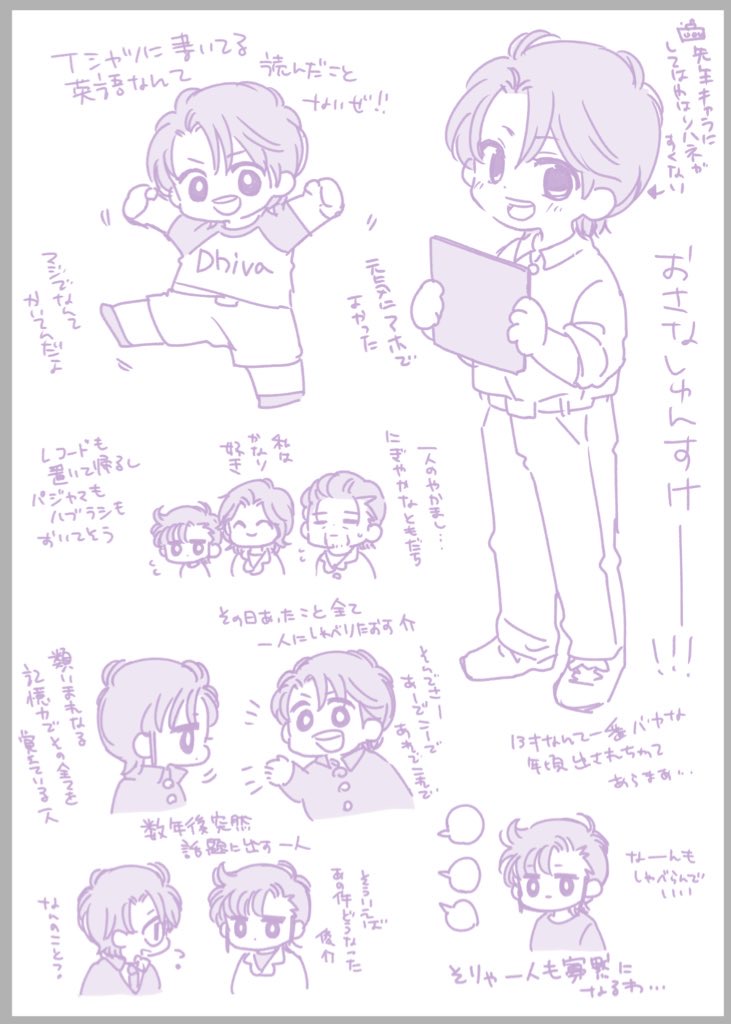 Tシャツに書いてる
英語なんて
読んだこと
ないぜ!!
先生キャラに
してはやはりハネが
すくない
Dhiva
マジでなんて
かいてんだよ
元気にアホで
よかった
おさなしゅんすけ――!!!
レコードも
置いて帰るし
パジャマも
ハブラシも
おいてそう
私は
かなり
好き
一人のやかまし…
にぎやかなともだち
その日あったこと全て
一人にしゃべりたおす介
類いまれなる
記憶力でその全てを
覚えている一人
そんでさー
あーでこーで
あれでこれで
13才なんて一番バカな
年頃出されちゃって
あらまあ…
数年後突然
話題に出す一人
なんのことっ?
そういえば
あの件どうなった
俊介
なーんも
しゃべらんで
いい
そりゃ一人も寡黙に
なるわ…